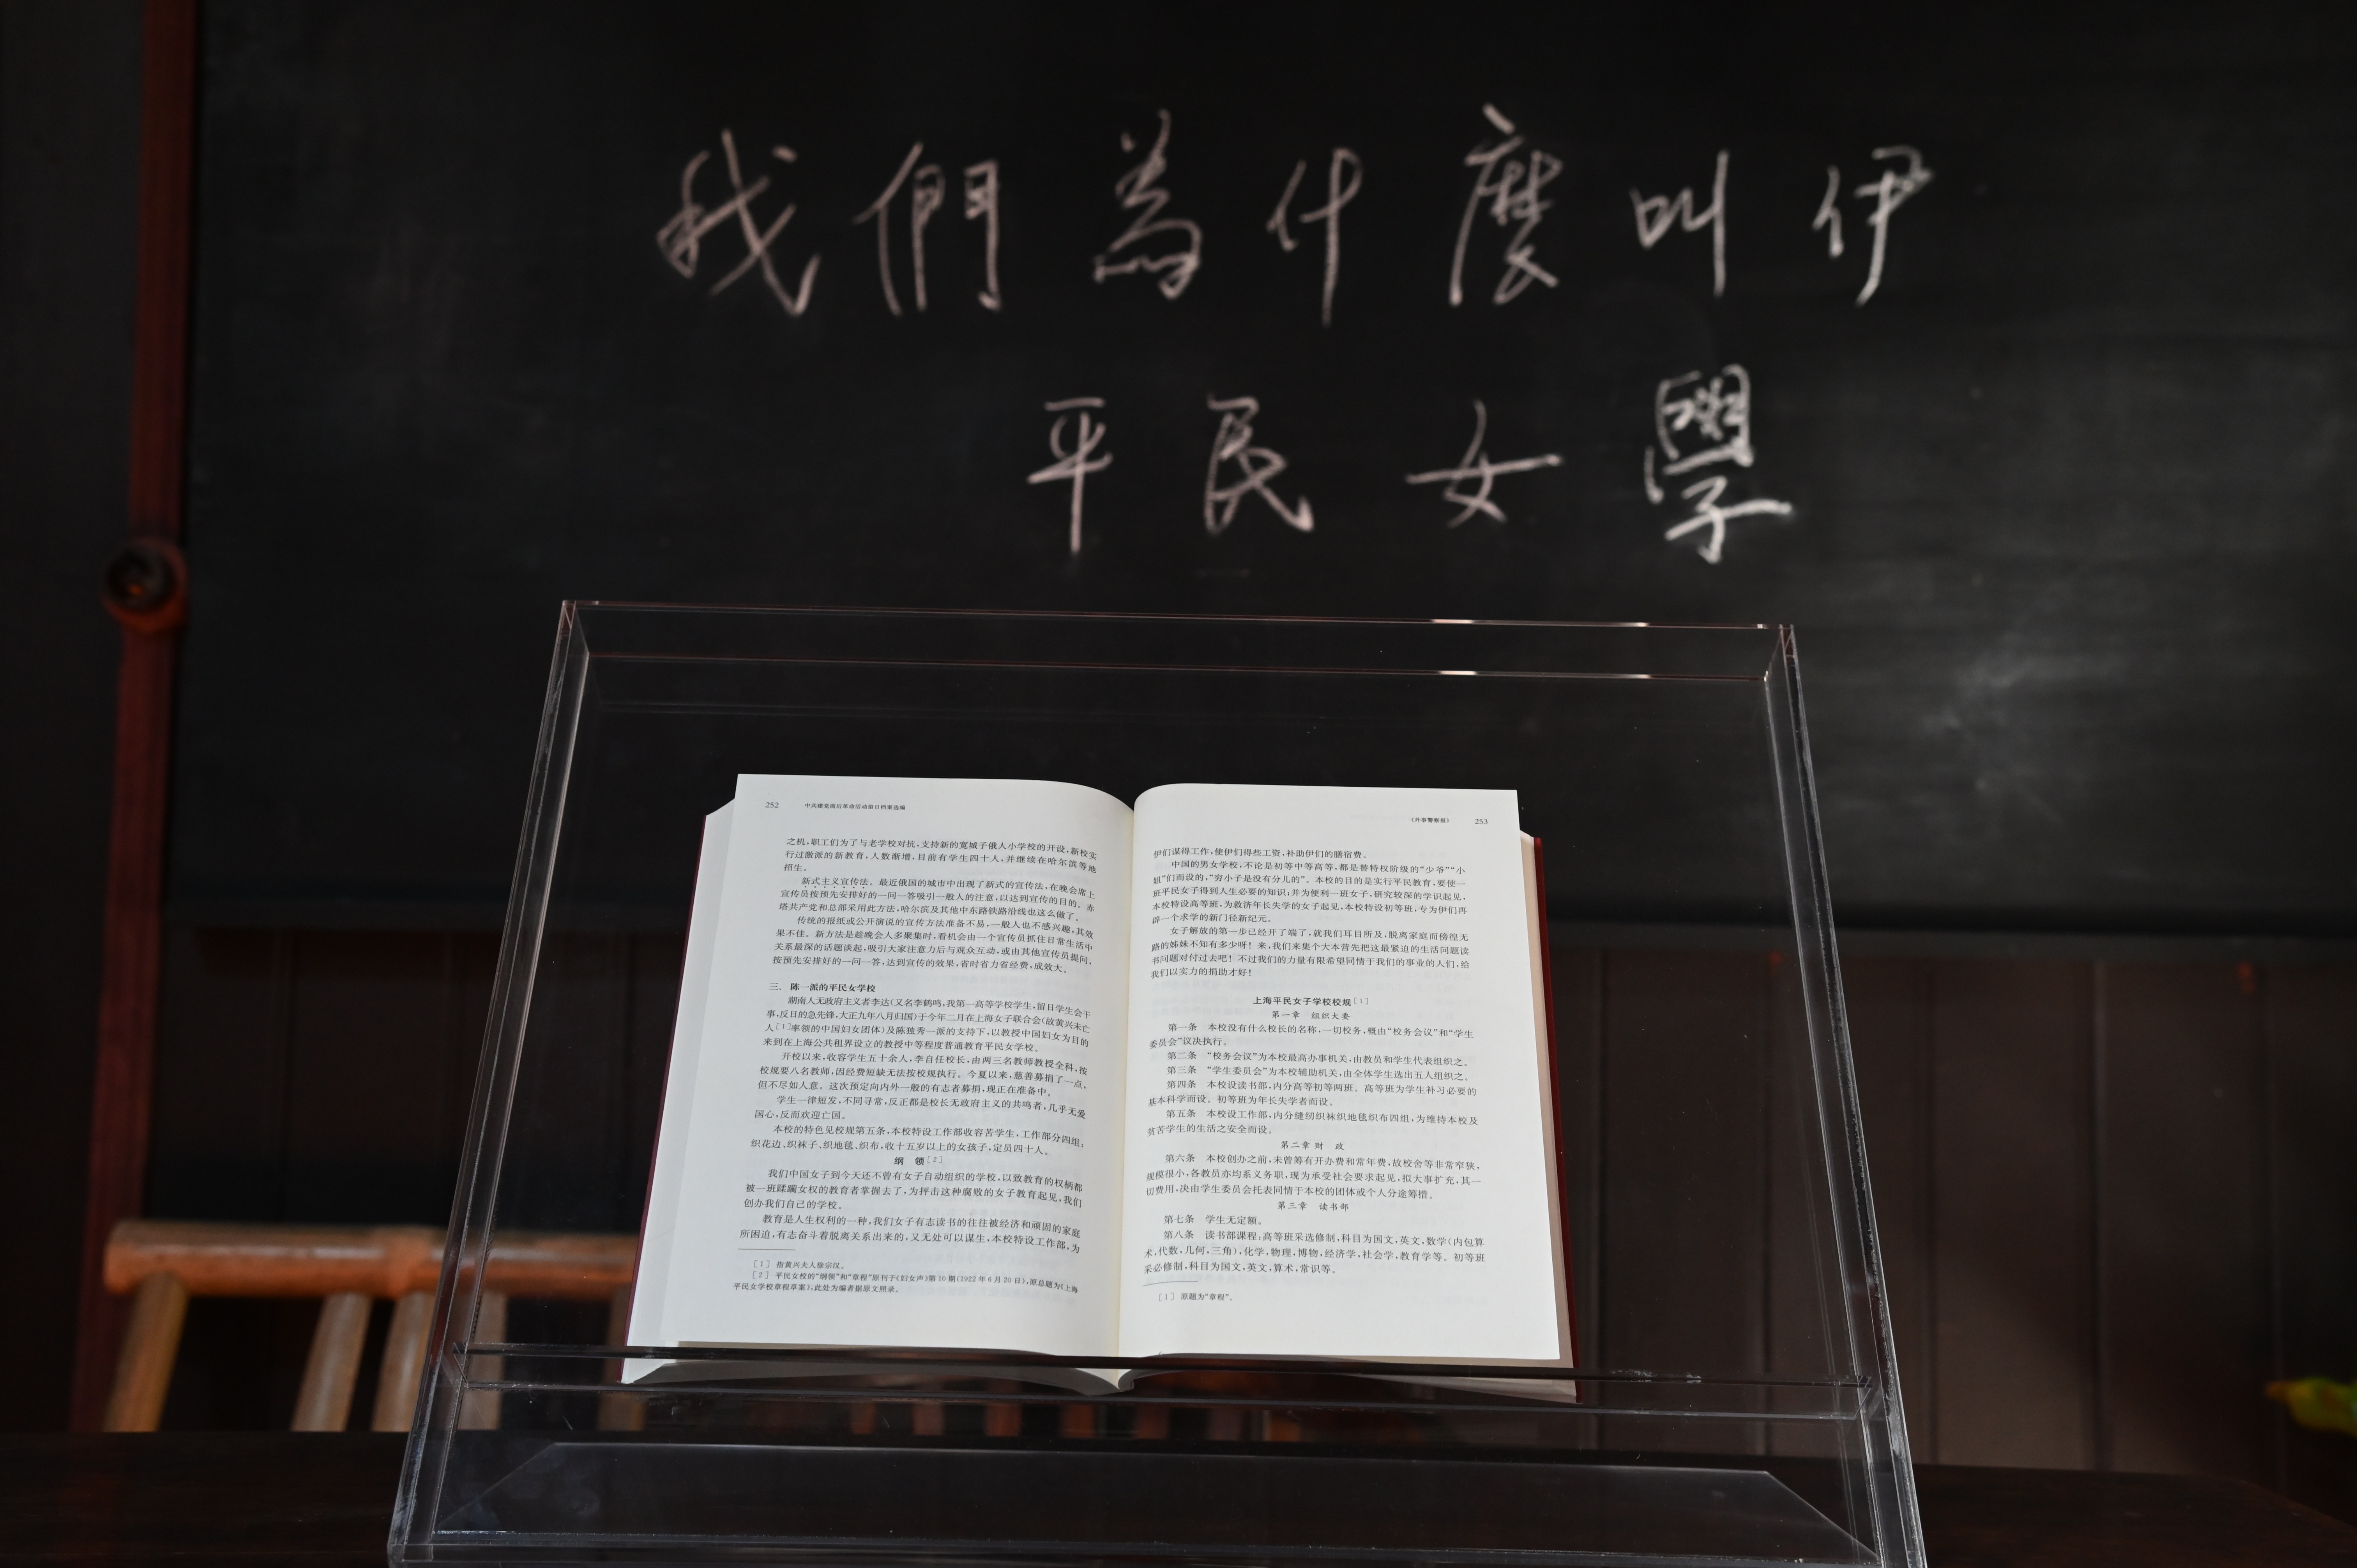 我們為什麼叫伊
平民女學
252 中共建党前后革命活动留日档案选编
之机,职工们为了与老学校对抗,支持新的宽城子俄人小学校的开设,新校实
行过激派的新教育,人数渐增,目前有学生四十人,并继续在哈尔滨等地
招生。
新式主义宣传法、最近俄国的城市中出现了新式的宣传法,在晚会席上
宣传员按预先安排好的一问一答吸引一般人的注意,以达到宣传的目的。赤
塔共产党和总部采用此方法,哈尔滨及其他中东路铁路沿线也这么做了。
传统的报纸或公开演说的宣传方法准备不易,一般人也不感兴趣,其效
果不佳。新方法是趁晚会人多聚集时,看机会由一个宣传员抓住日常生活中
关系最深的话题谈起,吸引大家注意力后与观众互动,或由其他宣传员提问,
按预先安排好的一问一答,达到宣传的效果,省时省力省经费,成效大。
三、陈一派的平民女学校
湖南人无政府主义者李达(又名李鹤鸣,我第一高等学校学生,留日学生会干
事,反日的急先锋,大正九年八月归国)于今年二月在上海女子联合会(故黄兴未亡
人[1]率领的中国妇女团体)及陈独秀一派的支持下,以教授中国妇女为目的
来到在上海公共租界设立的教授中等程度普通教育平民女学校。
开校以来,收容学生五十余人,李自任校长,由两三名教师教授全科,按
校规要八名教师,因经费短缺无法按校规执行。今夏以来,慈善募捐了一点,
但不尽如人意。这次预定向内外一般的有志者募捐,现正在准备中。
学生一律短发,不同寻常,反正都是校长无政府主义的共鸣者,几乎无爱
国心,反而欢迎亡国。
本校的特色见校规第五条,本校特设工作部收容苦学生,工作部分四组:
织花边、织袜子、织地毯、织布,收十五岁以上的女孩子,定员四十人。
纲 领[2]
我们中国女子到今天还不曾有女子自动组织的学校,以致教育的权柄都
被一班蹂躏女权的教育者掌握去了,为抨击这种腐败的女子教育起见,我们
创办我们自己的学校。
教育是人生权利的一种,我们女子有志读书的往往被经济和顽固的家庭
所困迫,有志奋斗着脱离关系出来的,又无处可以谋生,本校特设工作部,为
[1] 指黄兴夫人徐宗汉。
[2] 平民女校的“纲领”和“章程”原刊于《妇女声》第10期(1922年6月20日),原总题为《上海
平民女学校章程草案》,此处为编者据原文照录。
《外事警察报》 253
伊们谋得工作,使伊们得些工资,补助伊们的膳宿费。
中国的男女学校,不论是初等中等高等,都是替特权阶级的“少爷”“小
姐”们而设的,“穷小子是没有分儿的”。本校的目的是实行平民教育,要使一
班平民女子得到人生必要的知识;并为便利一班女子,研究较深的学识起见,
本校特设高等班,为救济年长失学的女子起见,本校特设初等班,专为伊们再
辟一个求学的新门径新纪元。
女子解放的第一步已经开了端了,就我们耳目所及,脱离家庭而傍徨无
路的姊妹不知有多少呀!来,我们来集个大本营先把这最紧迫的生活问题读
书问题对付过去吧!不过我们的力量有限希望同情于我们的事业的人们,给
我们以实力的捐助才好!
上海平民女子学校校规[1]
第一章 组织大要
第一条 本校没有什么校长的名称,一切校务,概由“校务会议”和“学生
委员会”议决执行。
第二条 “校务会议”为本校最高办事机关,由教员和学生代表组织之。
第三条 “学生委员会”为本校辅助机关,由全体学生选出五人组织之。
第四条 本校设读书部,内分高等初等两班。高等班为学生补习必要的
基本科学而设。初等班为年长失学者而设。
第五条 本校设工作部,内分缝纫织袜织地毯织布四组,为维持本校及
贫苦学生的生活之安全而设。
第二章 财 政
第六条 本校创办之前,未曾筹有开办费和常年费,故校舍等非常窄狭,
规模很小,各教员亦均系义务职,现为承受社会要求起见,拟大事扩充,其一
切费用,决由学生委员会托表同情于本校的团体或个人分途筹措。
第三章 读书部
第七条 学生无定额。
第八条 读书部课程:高等班采选修制,科目为国文,英文,数学(内包算
术,代数,几何,三角),化学,物理,博物,经济学,社会学,教育学等。初等班
采必修制,科目为国文,英文,算术,常识等。
[1] 原题为“章程”。